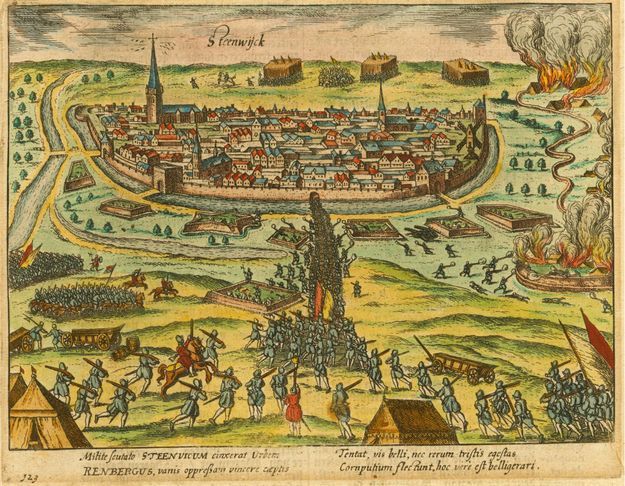 Steenwijck
Milite scutato STEENVICUM cinxerat Urbem
RENBERGUS, vanis oppressam vincere cæptis
Tentat, vis belli, nec rerum tristis egestas
Cornputium flectunt, hoc vere est belligerari.
123